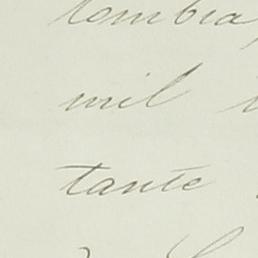 lombia,
mil
tante